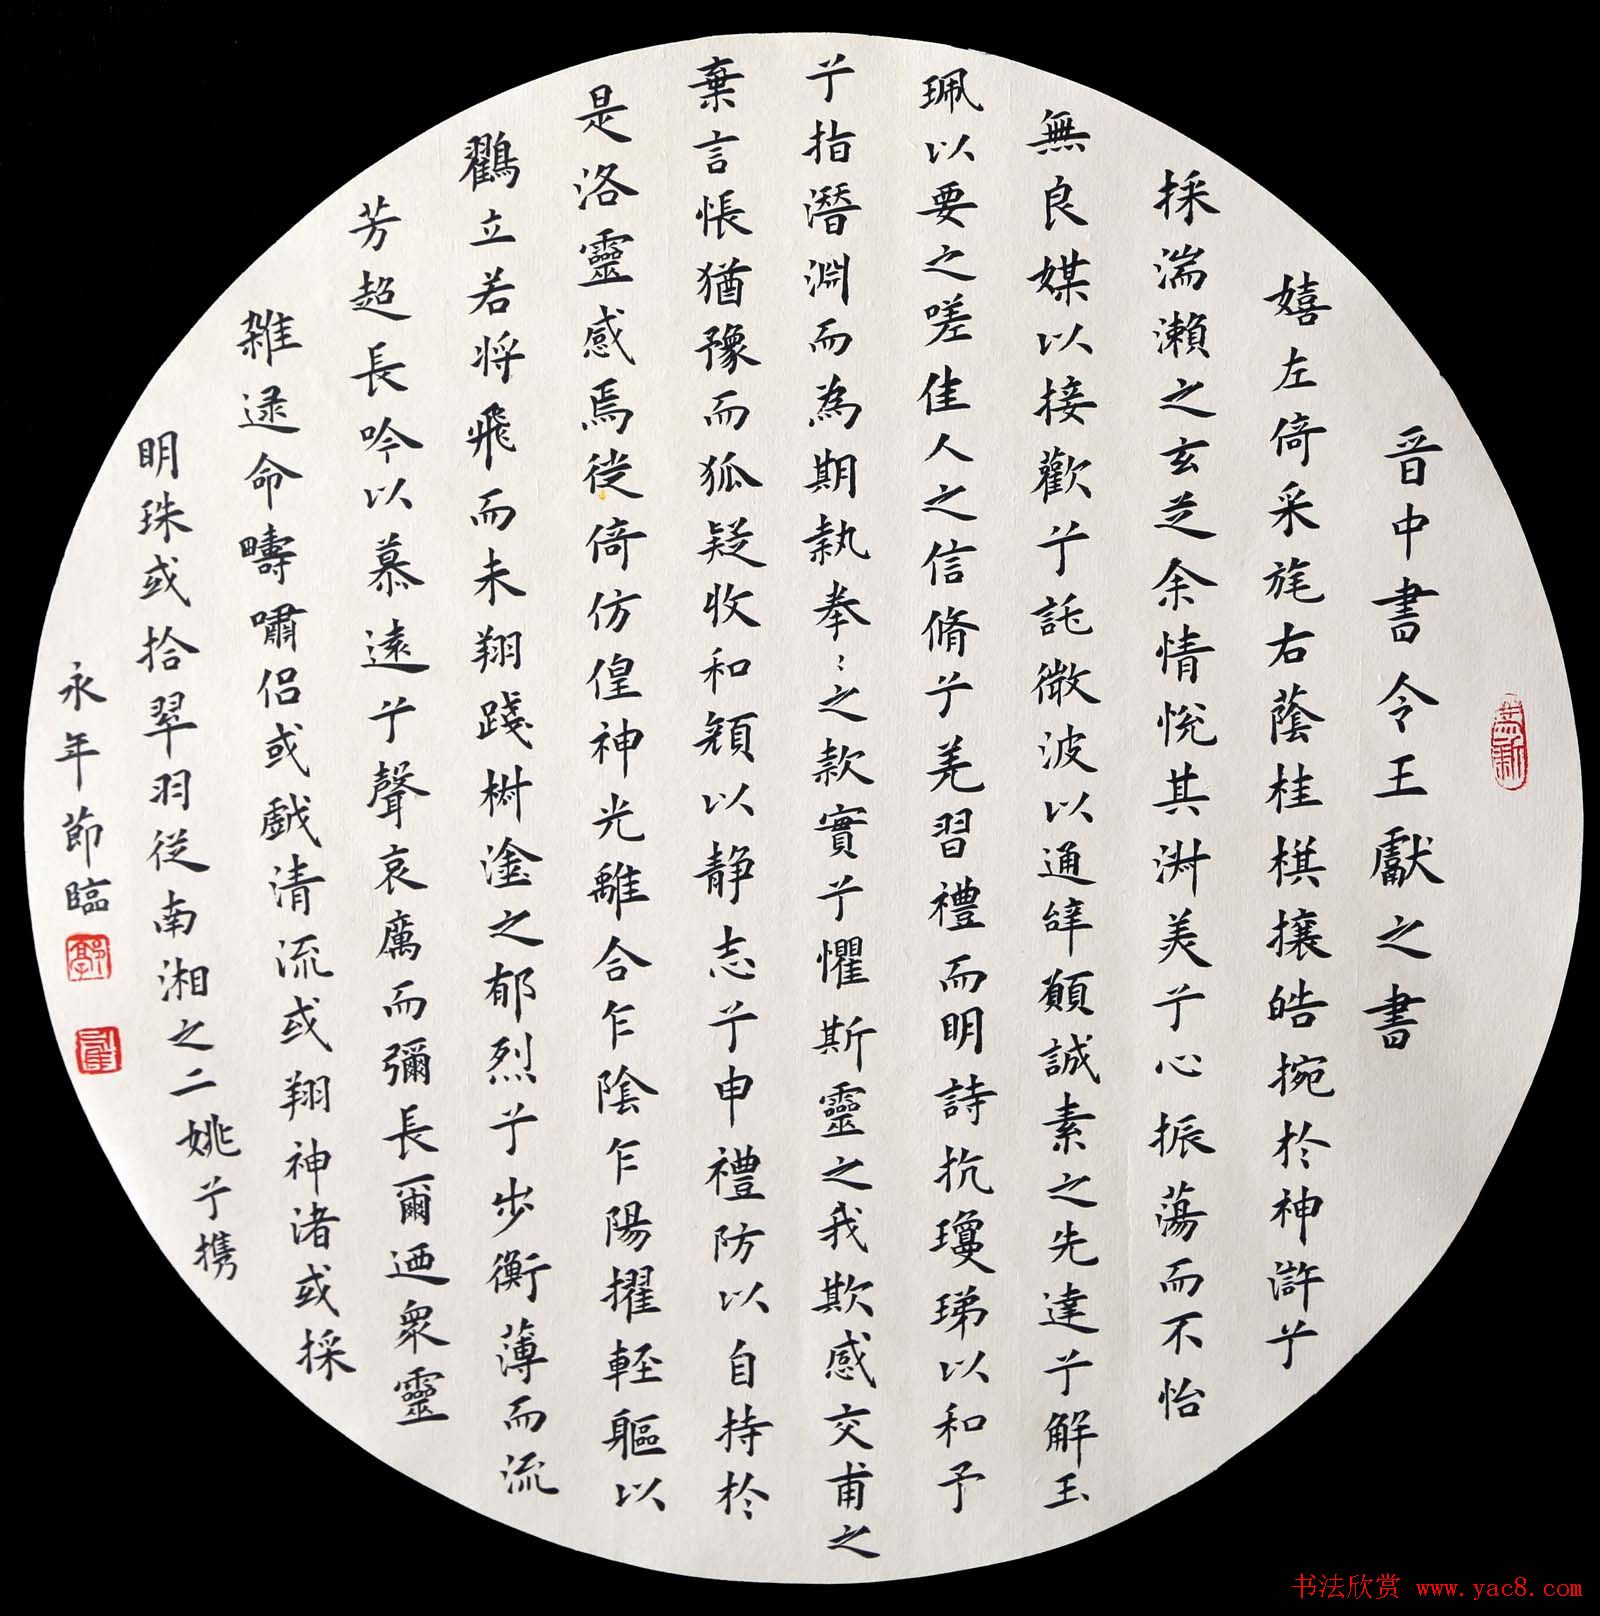 晋中書令王獻之書
嬉左倚采旄右蔭桂棋攘皓捥於神滸兮
採湍瀨之玄芝余情悅其淑美兮心振蕩而不怡
無良媒以接歡兮託微波以通辭願誠素之先達兮解玉
珮以要之嗟佳人之信脩兮羌習禮而明詩抗瓊珶以和予
兮指潛淵而為期執拳〻之款實兮懼斯靈之我欺感交甫之
棄言悵猶豫而狐疑收和顏以静志兮申禮防以自持於
是洛靈感焉徙倚仿偟神光離合乍陰乍陽擢輕軀以
鸖立若将飛而未翔踐椒塗之郁烈兮步衡薄而流
芳超長吟以慕遠兮聲哀厲而彌長爾迺衆靈
雜遝命疇嘯侣或戲清流或翔神渚或採
明珠或拾翠羽從南湘之二姚兮携
永年節臨
书法欣赏 www.yac8.com